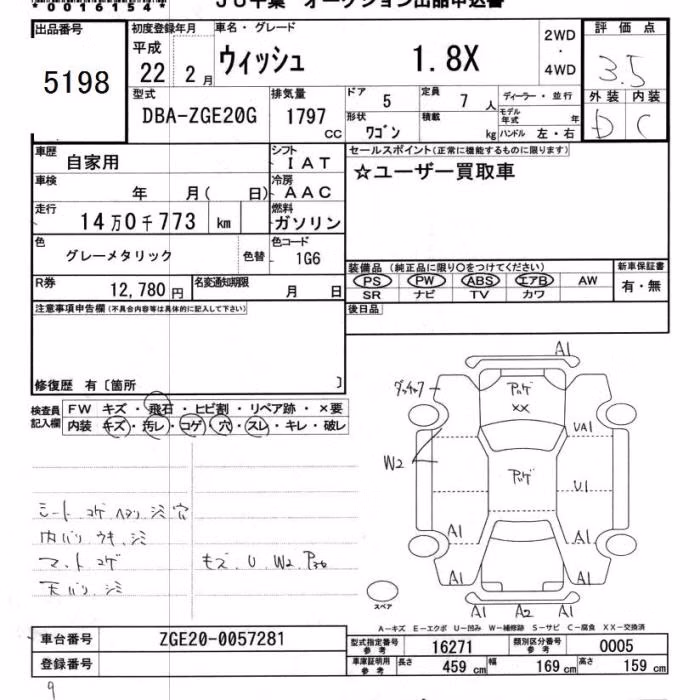 *00161154*
JU千葉 オークション出品申込書
出品番号
5198
初度登録年月
平成
22 2月
車名・グレード
ウィッシュ 1.8X
2WD
・
4WD
評価点
3.5
外装 内装
D C
型式
DBA-ZGE20G
排気量
1797
CC
ドア
5
定員
7 人
形状
ワゴン
積載
kg
ディーラー・並行
モデル年式 年
ハンドル 左・右
車歴
自家用
シフト
IAT
車検
年 月( 日)
冷房
AAC
走行
14万0千773 km
燃料
ガソリン
色
グレーメタリック
色替
色コード
1G6
R券
12,780円
名変通知期限
月 日
セールスポイント(正常に機能するものに限ります)
☆ユーザー買取車
装備品(純正品に限り○をつけてください)
PS PW ABS エアB AW
SR ナビ TV カワ
新車保証書
有・無
後日品
注意事項申告欄(不具合内容等は具体的に記入して下さい)
修復歴 有〔箇所 〕
検査員記入欄
FW キズ・飛石・ヒビ割・リペア跡・×要
内装 キズ・汚レ・コゲ・穴・スレ・キレ・破レ
シート コゲ ヘタリ シミ 穴
内バリ ウキ シミ
マット コゲ
天バリ シミ
キズ U W2
A1
××
W2
UA1
U1
A1
A1
A1
A1
A1 A2 A1
スペア
A-キズ E-エクボ U-凹み W-補修跡 S-サビ C-腐食 XX-交換済
車台番号
ZGE20-0057281
登録番号
型式指定番号
参考
16271
類別区分番号
参考
0005
車庫証明用
参考
長さ
459 cm
幅
169 cm
高さ
159 cm
9